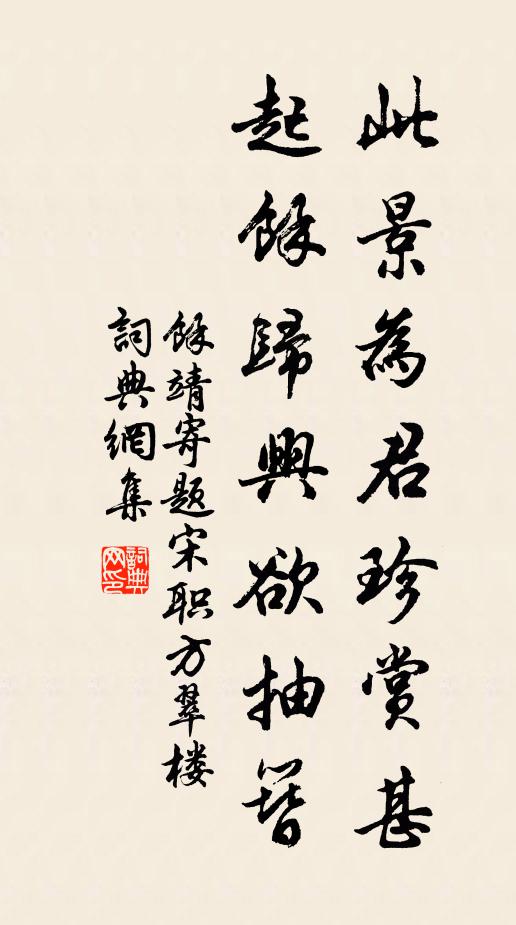 此景為君珍賞甚
起餘歸興欲抽簪
餘靖寄題宋职方翠楼
詞典網集
詞典网印